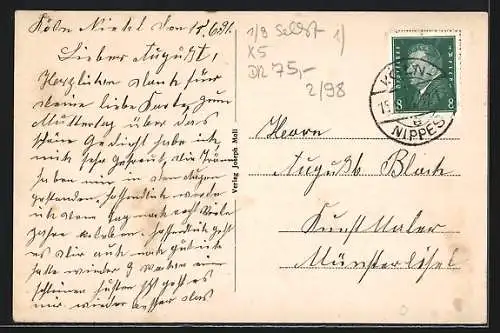 Köln Niehl den 15.6.31.
Lieber August,
Herzlichen Dank für
deine liebe Karte zum
Muttertag über das
schöne Gedicht habe ich
mich sehr gefreut die Träne
haben mir in den Augen
gestanden. hoffentlich werde
ich den Tag noch viele
Jahre erleben. hoffentlich geht
es dir auch noch gut ich
hatte wieder 3 Wochen ein
schlimen husten jetz geht es
mir wieder besser das
Verlag Joseph Moll
1/9 Selbst 1/
X5
DR 75,-
2/98
DEUTSCHES REICH
8 8
NIPPES
Herrn
August Block
Kunst Maler
Münstereifel